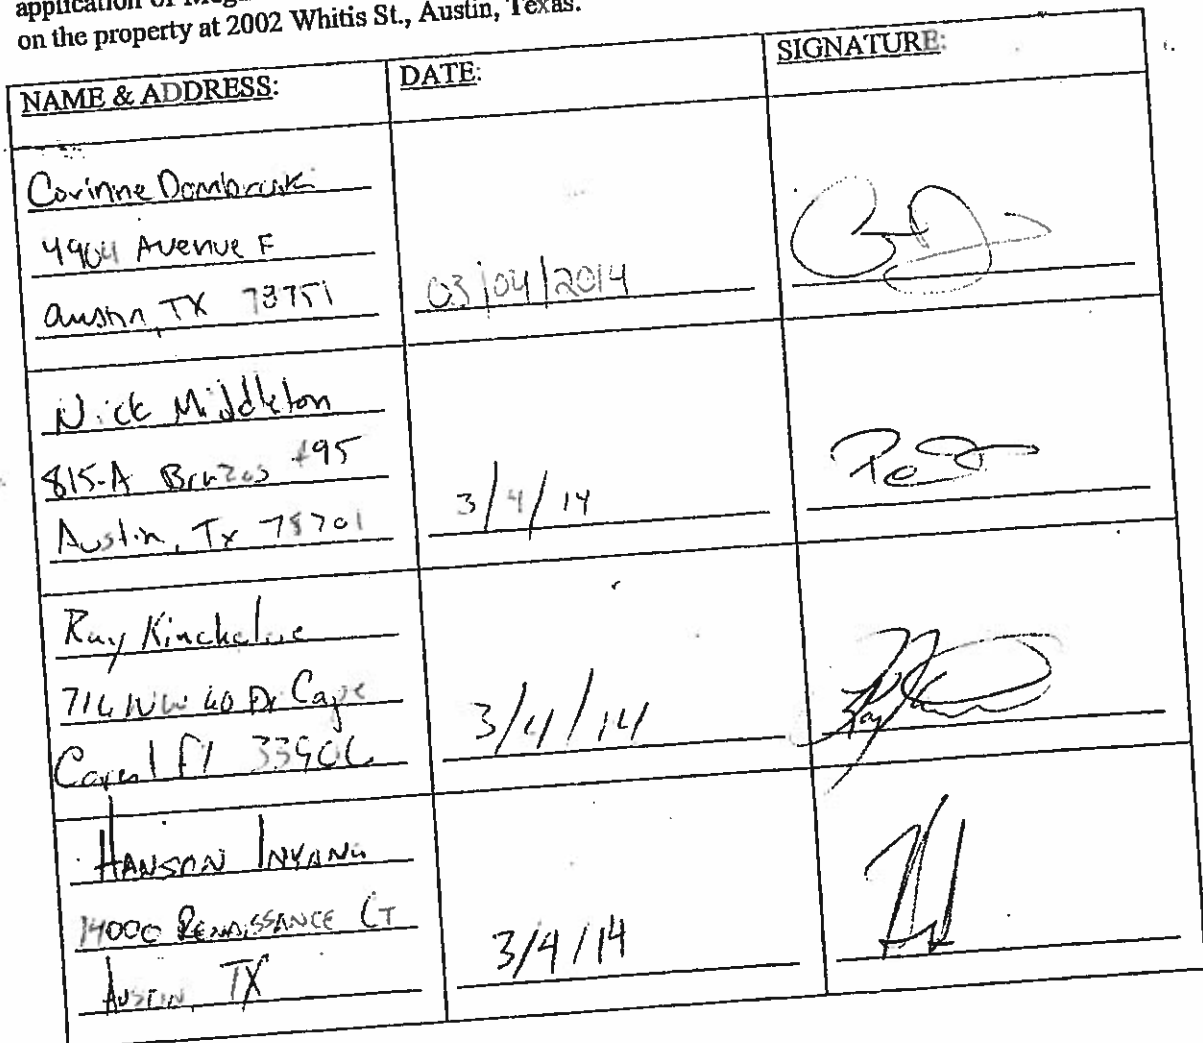 application of
on the property at 2002 Whitis St., Austin, Texas.
NAME & ADDRESS: DATE: SIGNATURE:
Corinne
4904 Avenue F
Austin, TX 78751 03/04/2014
Nick Middleton
815-A Brazos
Austin, Tx 78701 3/4/14
Ray Kincheloe
NW 40 Dr Cape
Coral Fl 3/4/14
HANSON INYANG
14000 RENAISSANCE CT
AUSTIN, TX 3/4/14